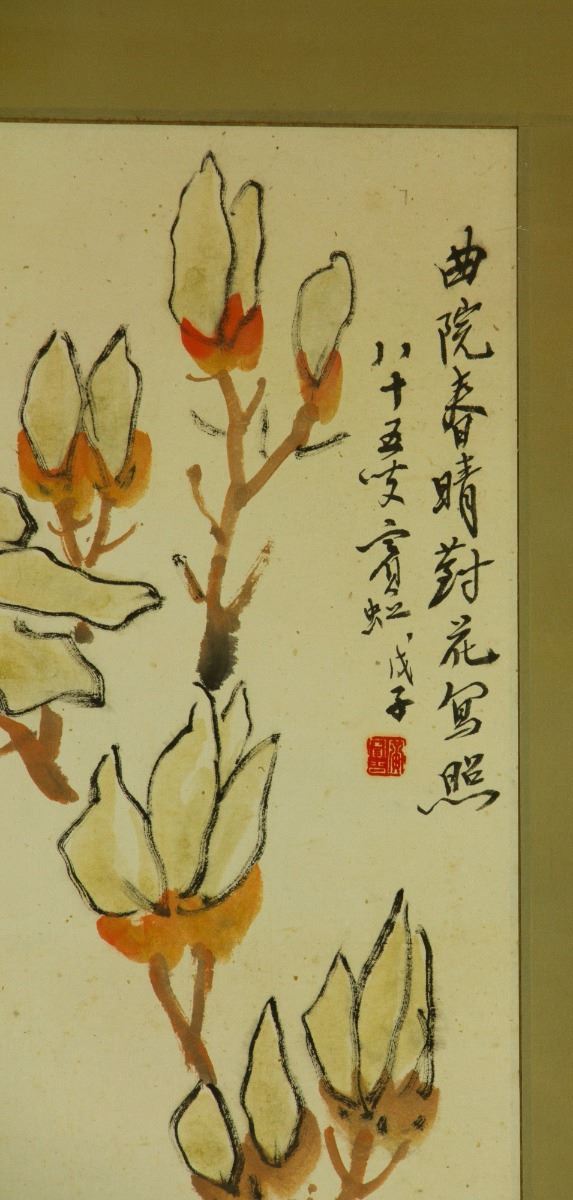 曲院春晴對花寫照
八十五叟賓虹戊子